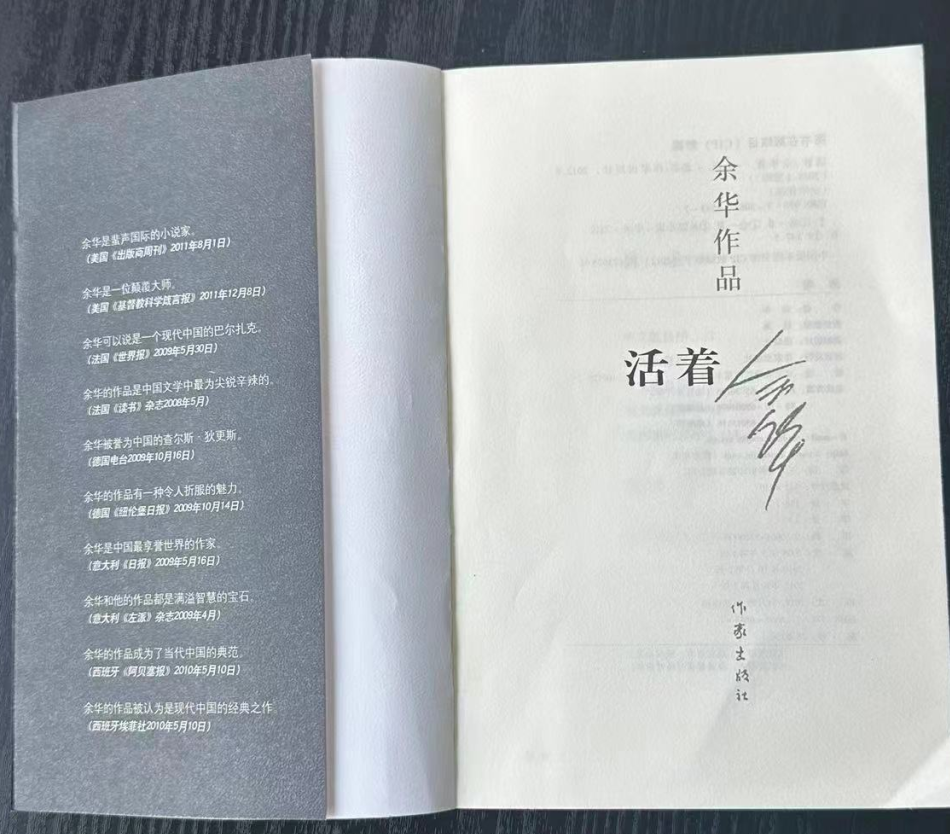 余华是蜚声国际的小说家。
(美国《出版商周刊》2011年8月1日)
余华是一位颠覆大师。
(美国《基督教科学箴言报》2011年12月8日)
余华可以说是一个现代中国的巴尔扎克。
(法国《世界报》2009年5月30日)
余华的作品是中国文学中最为尖锐辛辣的。
(法国《读书》杂志2008年5月)
余华被誉为中国的查尔斯·狄更斯。
(德国电台2009年10月16日)
余华的作品有一种令人折服的魅力。
(德国《纽伦堡日报》2009年10月14日)
余华是中国最享誉世界的作家。
(意大利《日报》2009年5月16日)
余华和他的作品都是满溢智慧的宝石。
(意大利《左派》杂志2009年4月)
余华的作品成为了当代中国的典范。
(西班牙《阿贝塞报》2010年5月10日)
余华的作品被认为是现代中国的经典之作。
(西班牙埃菲社2010年5月10日)
余华作品
活着
余华
作家出版社